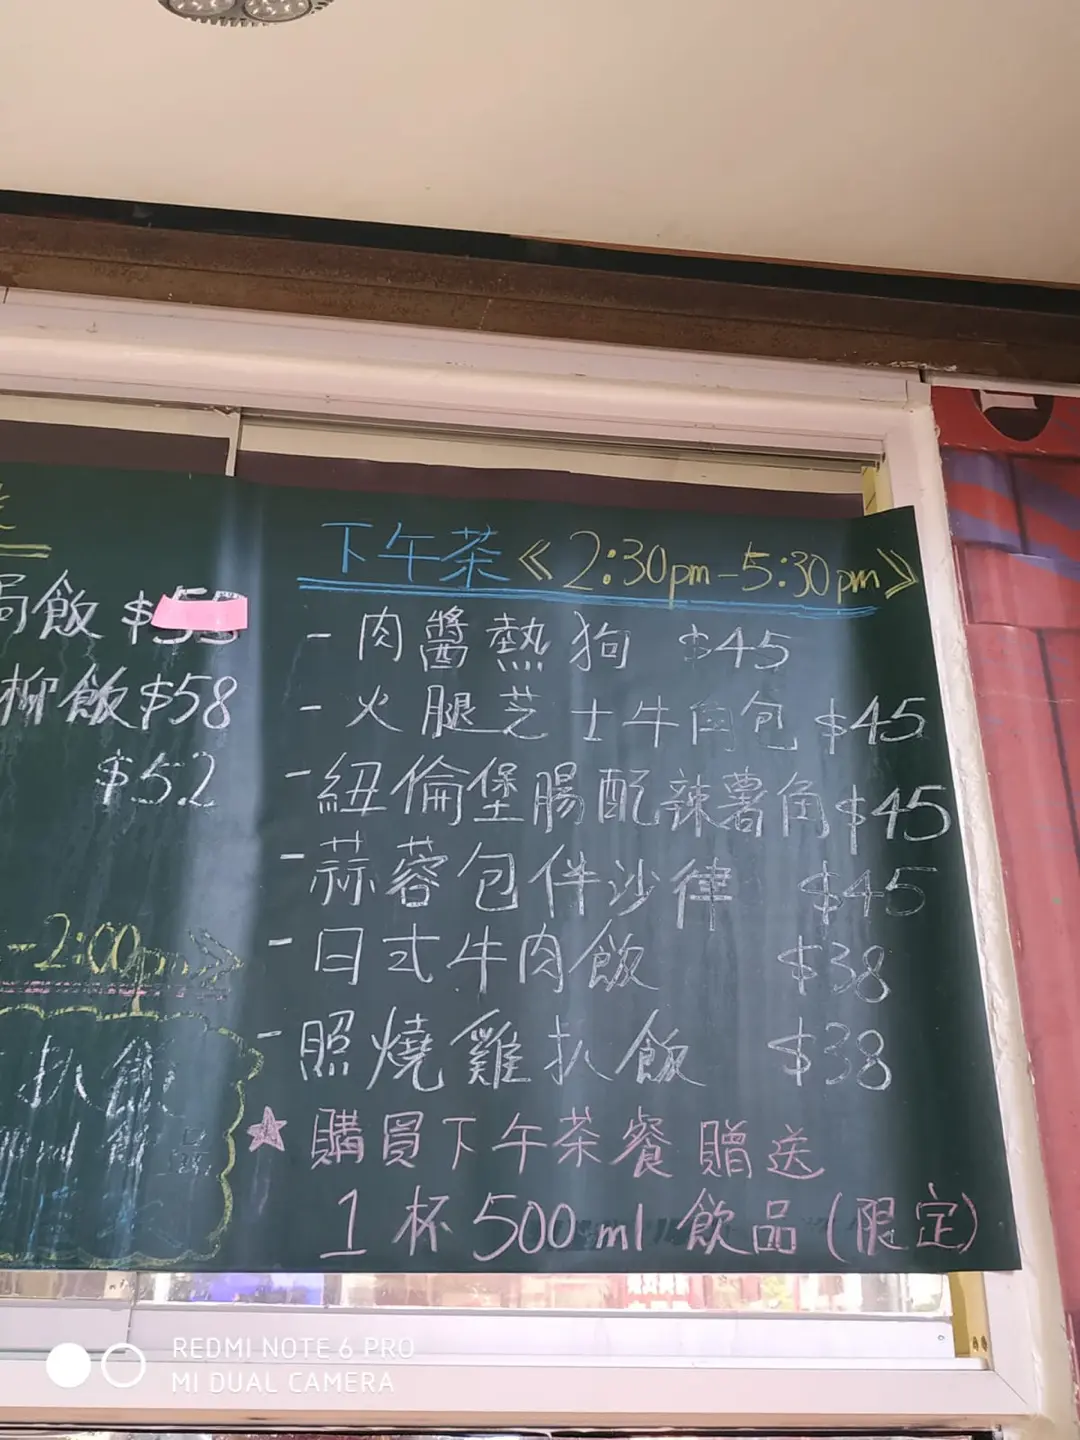 飯 $
柳飯 $58
$52
-2:00pm》
扒飯
下午茶《2:30pm-5:30pm》
- 肉醬熱狗 $45
- 火腿芝士牛角包 $45
- 紐倫堡腸配辣薯角 $45
- 蒜蓉包伴沙律 $45
- 日式牛肉飯 $38
- 照燒雞扒飯 $38
★ 購買下午茶餐贈送
1杯500ml飲品(限定)
REDMI NOTE 6 PRO
MI DUAL CAMERA